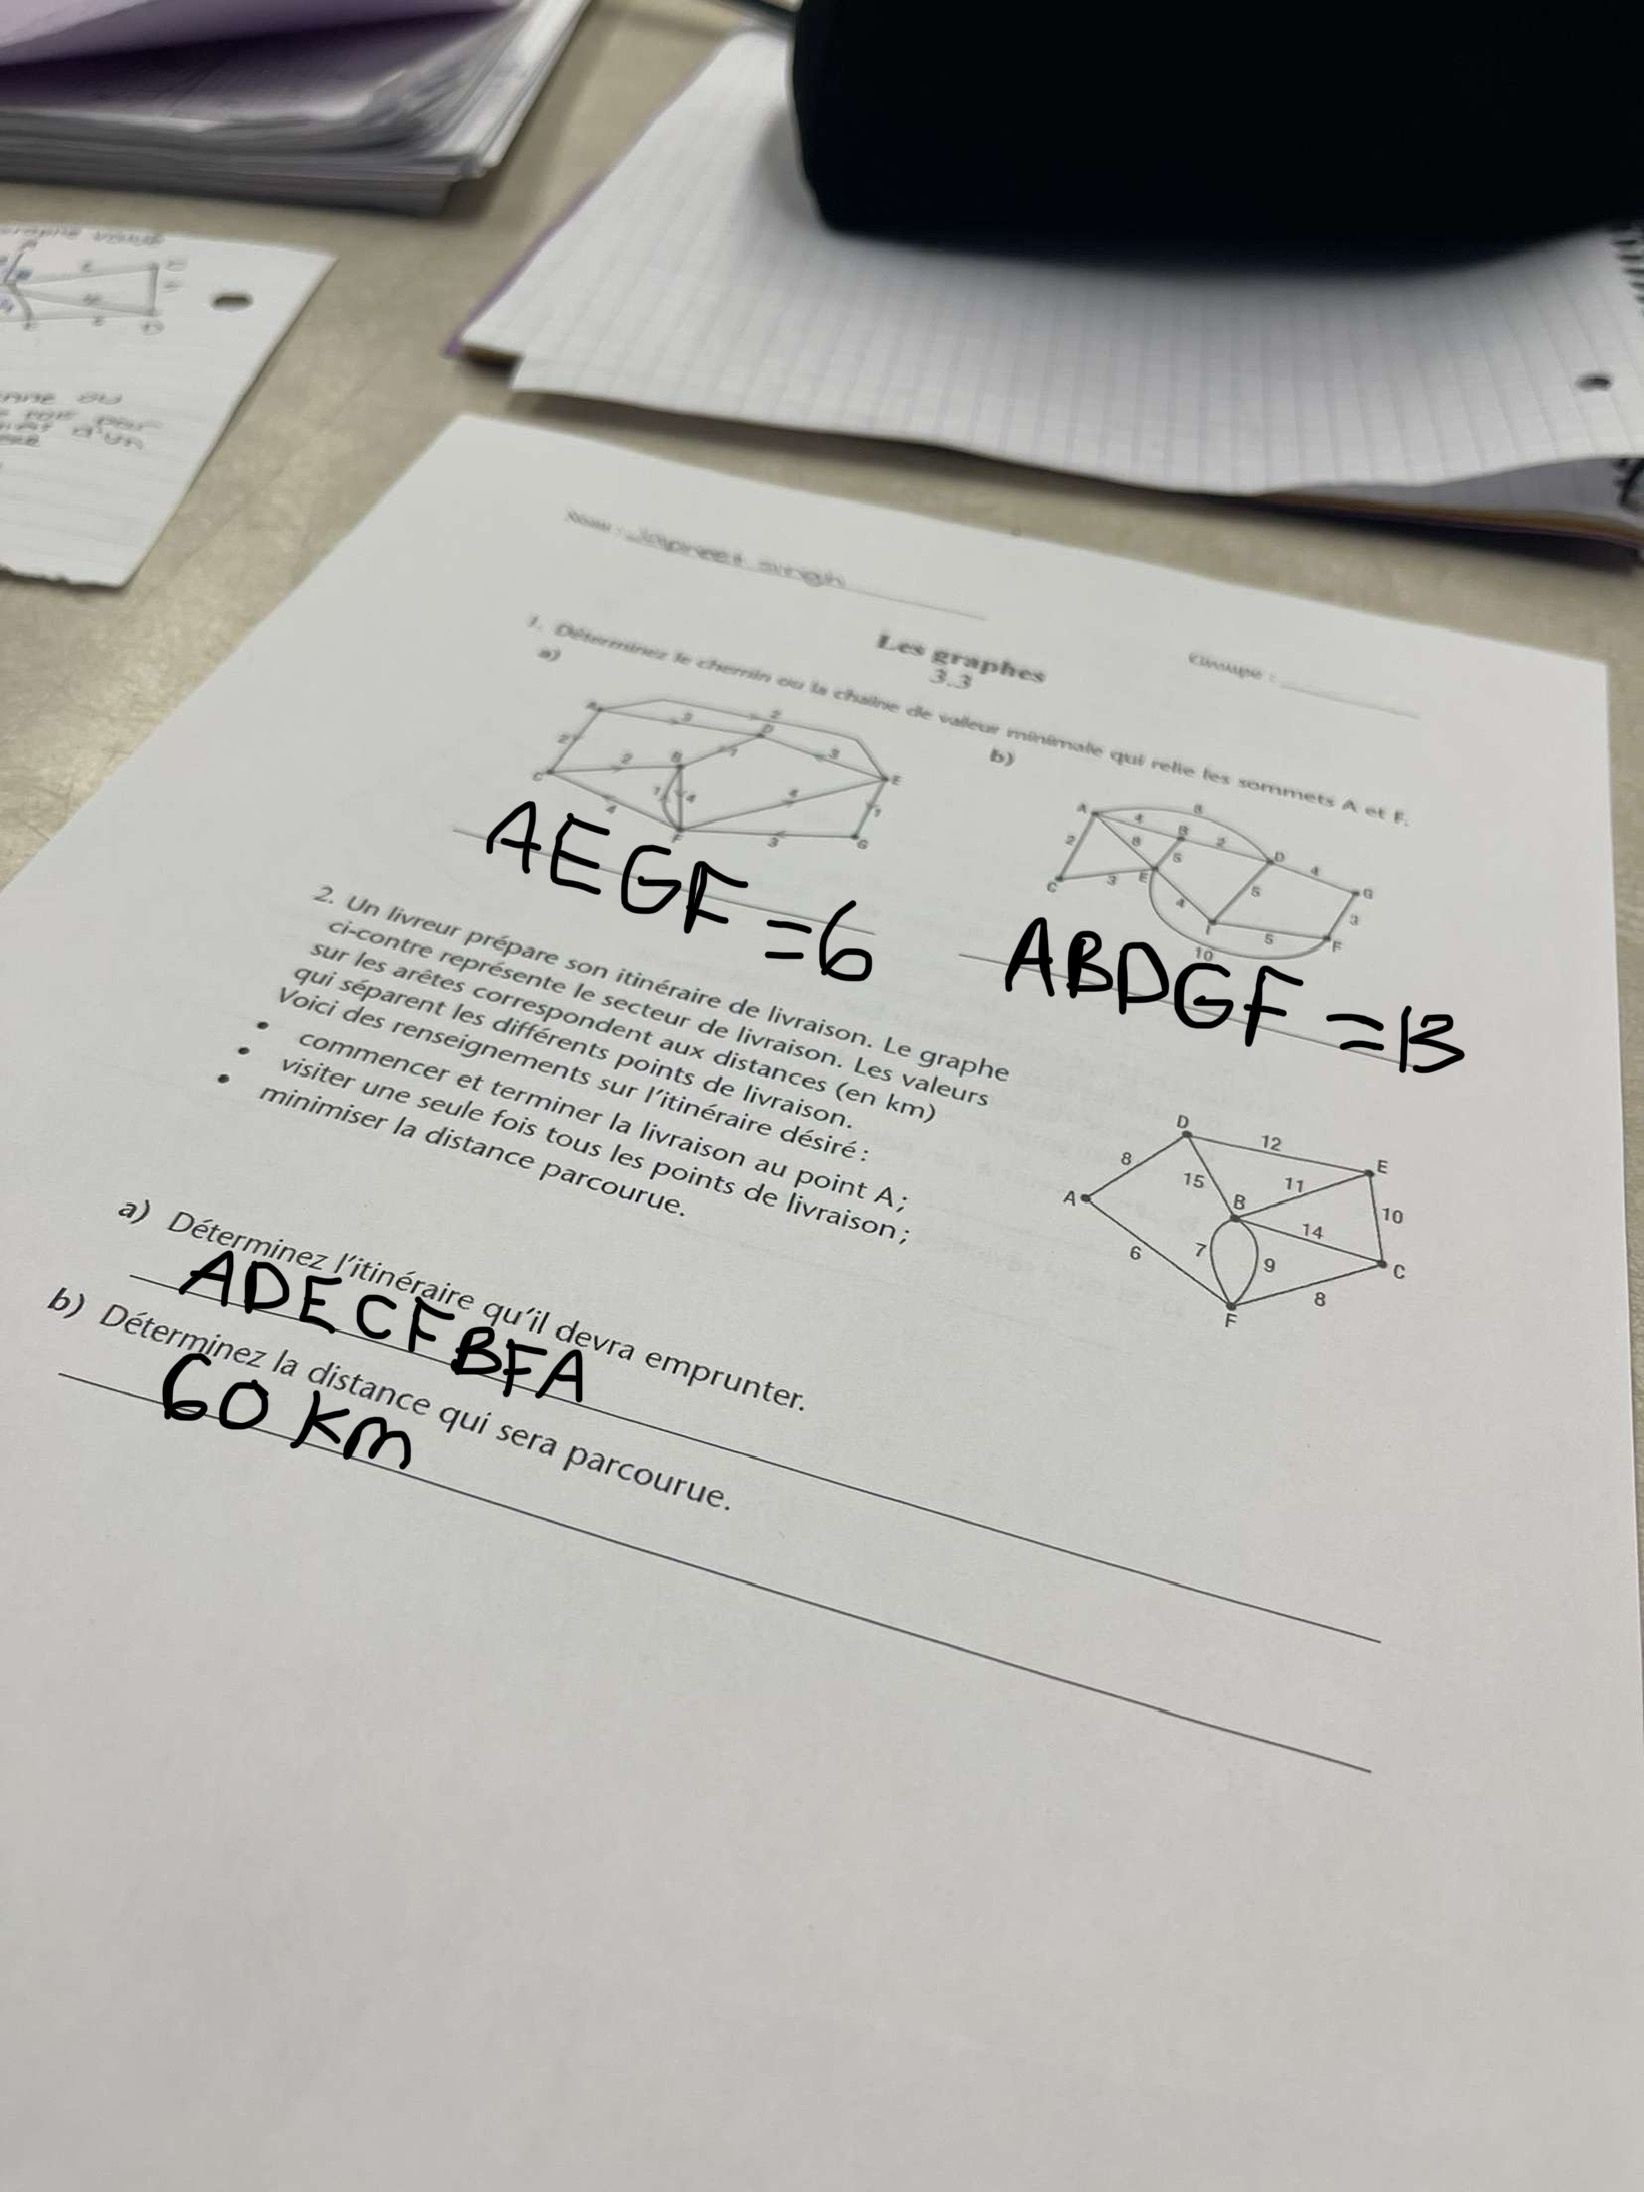 Nom : Jaipreet Singh
Groupe :
Les graphes
3.3
1. Déterminez le chemin ou la chaîne de valeur minimale qui relie les sommets A et F.
a)
A 3 2
D
2 2 B 1 3 E
C 1 4 4 1
4 F 3 G
AEGF = 6
b)
A 4 8
B 2 D 4 G
2 8 5 5 3
C 3 E 4 5 F
10
ABDGF = 13
2. Un livreur prépare son itinéraire de livraison. Le graphe
ci-contre représente le secteur de livraison. Les valeurs
sur les arêtes correspondent aux distances (en km)
qui séparent les différents points de livraison.
Voici des renseignements sur l'itinéraire désiré :
• commencer et terminer la livraison au point A;
• visiter une seule fois tous les points de livraison;
• minimiser la distance parcourue.
D
8 12 E
15 11
A B 10
14
6 7 9 C
8
F
a) Déterminez l'itinéraire qu'il devra emprunter.
ADECFBFA
b) Déterminez la distance qui sera parcourue.
60 km